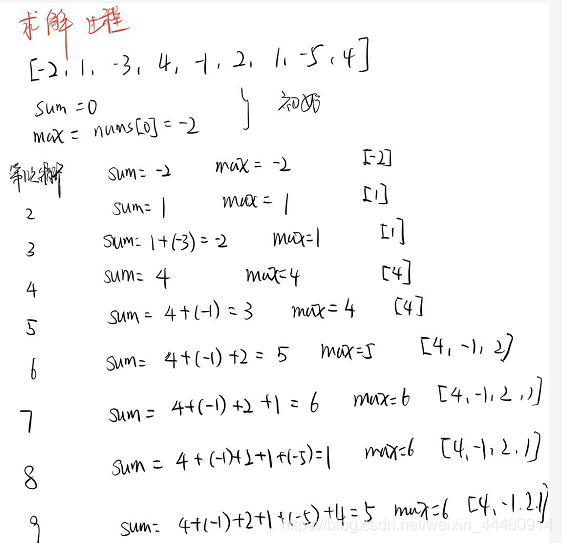 求解过程
[-2, 1, -3, 4, -1, 2, 1, -5, 4]
sum = 0
max = nums[0] = -2 } 初始
sum= -2 max = -2 [-2]
2 sum= 1 max = 1 [1]
3 sum= 1+(-3) = -2 max=1 [1]
4 sum= 4 max=4 [4]
5 sum = 4+(-1) = 3 max=4 [4]
6 sum= 4+(-1)+2 = 5 max=5 [4, -1, 2]
7 sum = 4+(-1)+2+1 = 6 max=6 [4, -1, 2, 1]
8 sum = 4+(-1)+2+1+(-5)=1 max=6 [4, -1, 2, 1]
9 sum= 4+(-1)+2+1+(-5)+4=5 max=6 [4, -1, 2, 1]
https://blog.csdn.net/weixin_44480914